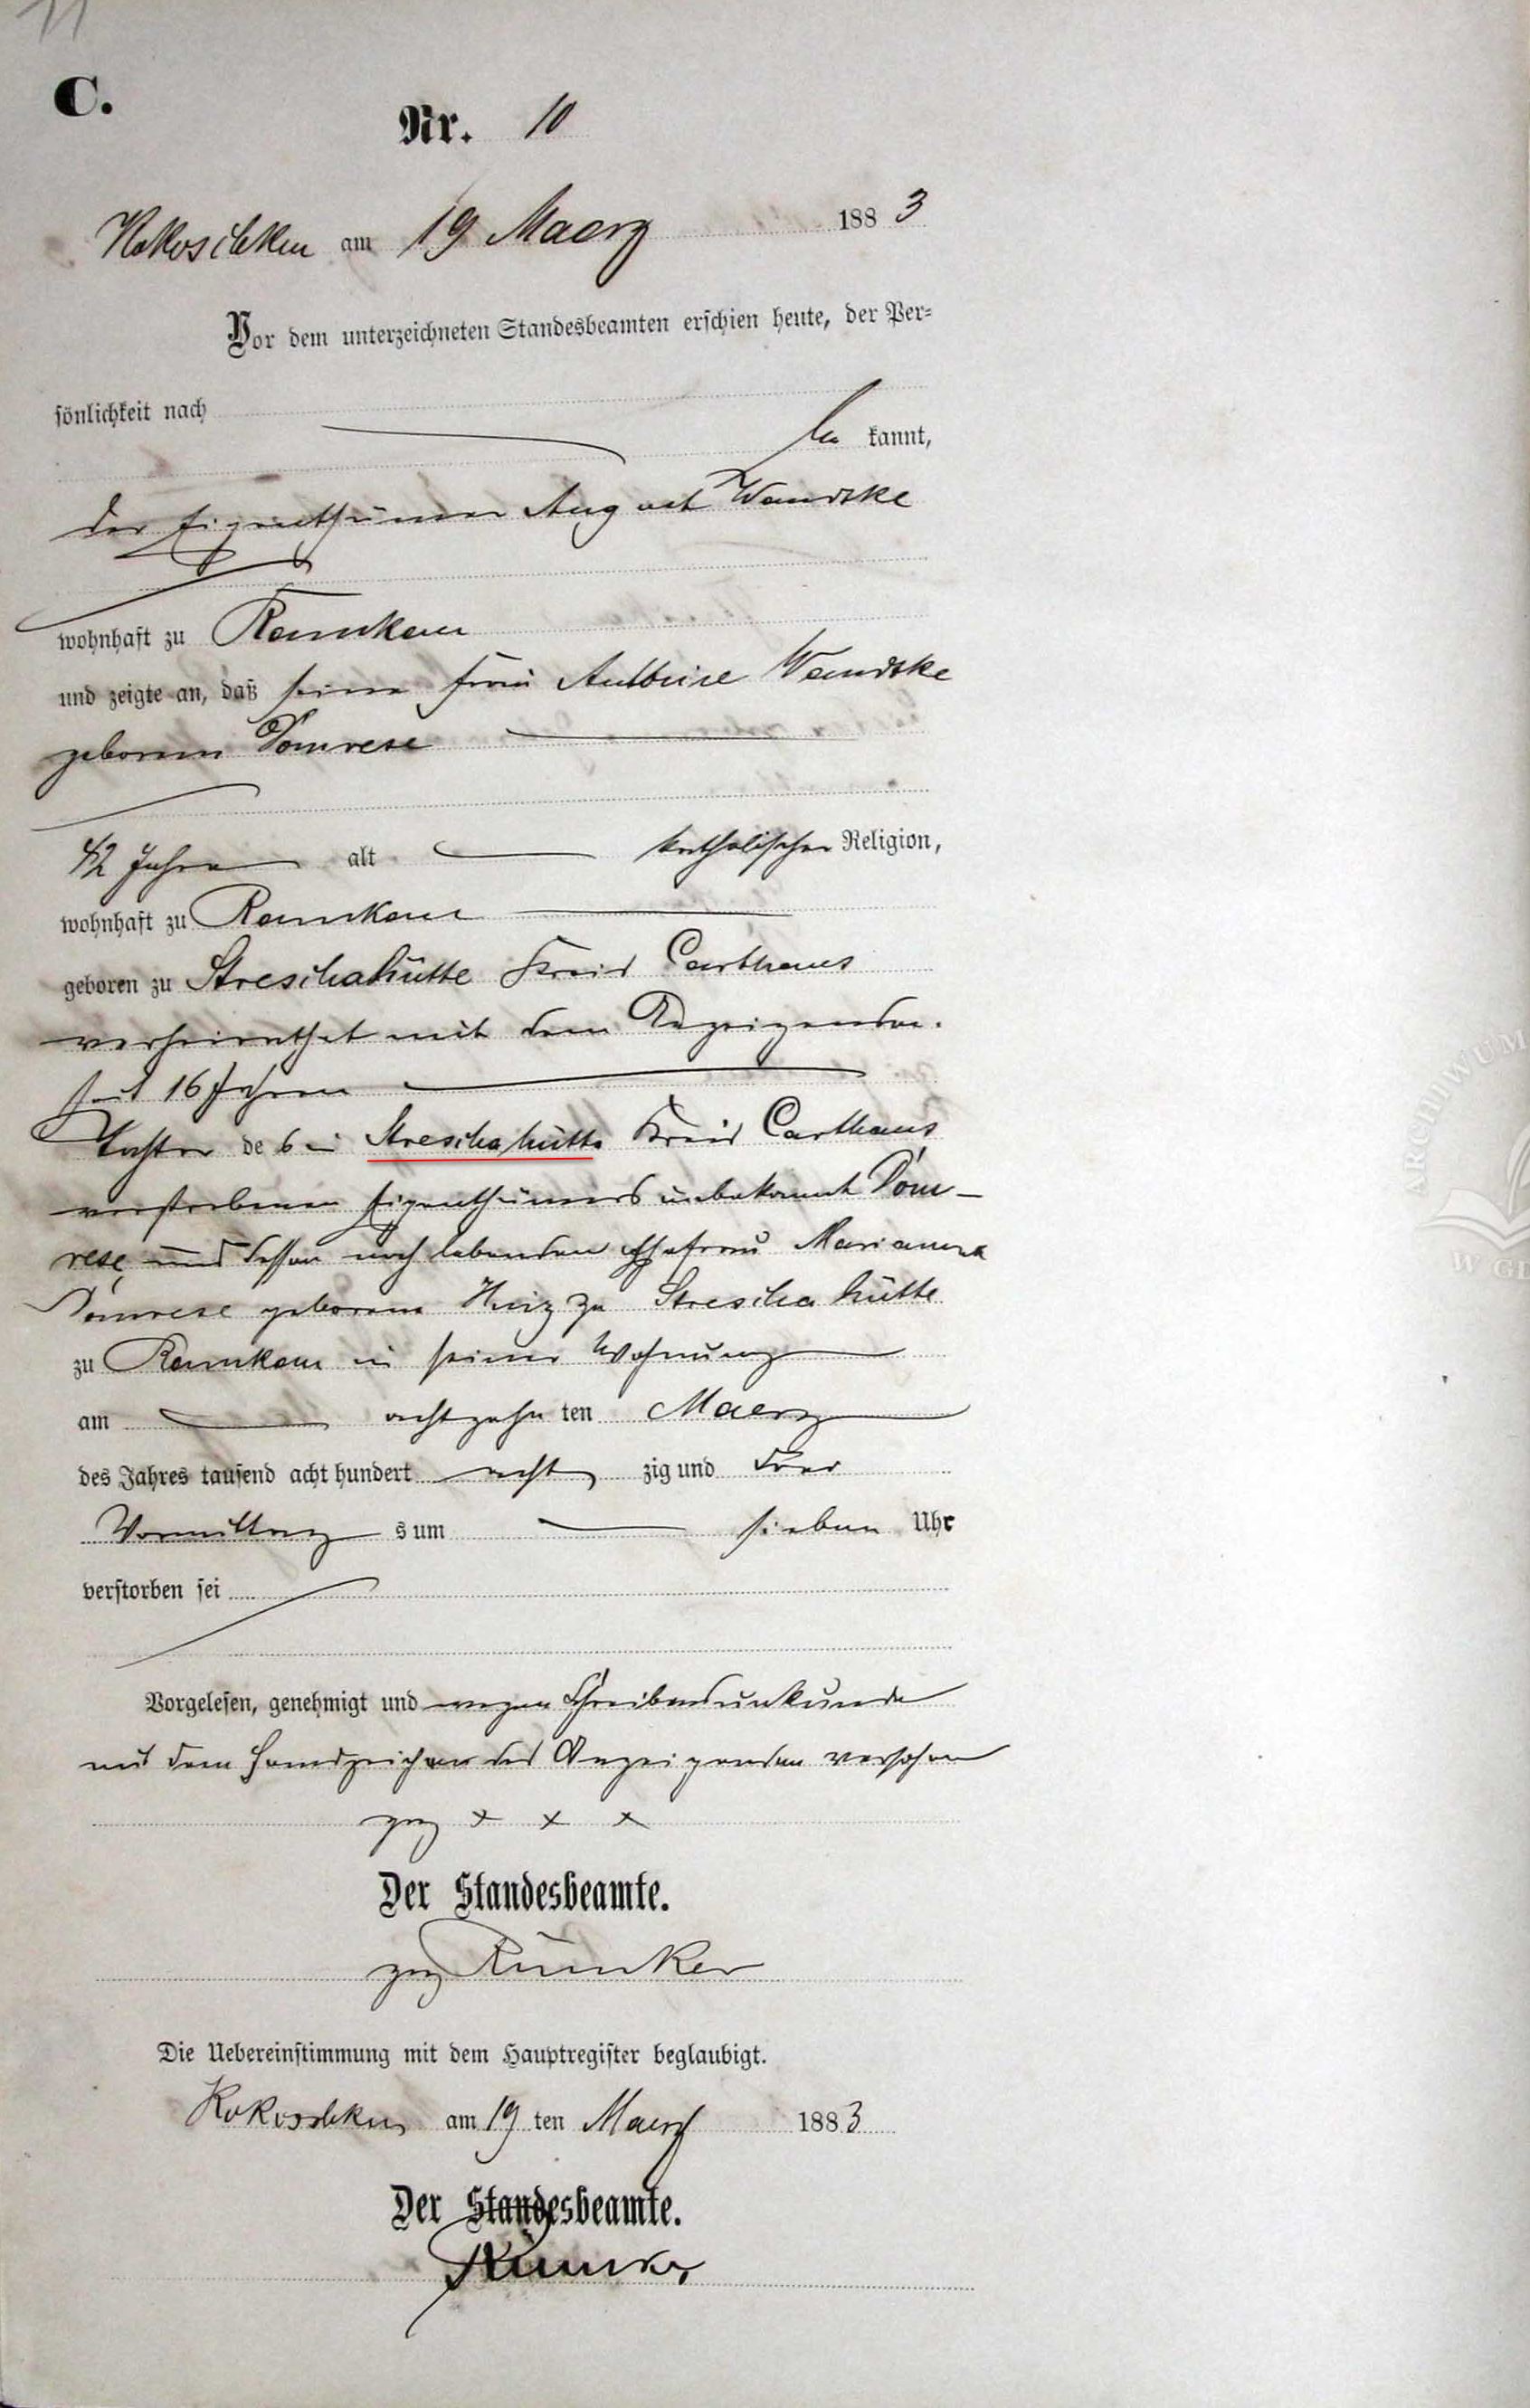 11
C.
Nr. 10
Kokoschken am 19 Maerz 1883
Vor dem unterzeichneten Standesbeamten erschien heute, der Per=
sönlichkeit nach
be kannt,
der Eigenthümer August Wandtke
wohnhaft zu Ramkau
und zeigte an, daß seine Frau Wandtke
geborene Domrese
42 Jahre alt katholischer Religion,
wohnhaft zu Ramkau
geboren zu Streschahütte Kreis Carthaus
verheirathet mit dem Anzeigenden.
seit 16 Jahren
Tochter des in Streschahütte Kreis Carthaus
verstorbenen Eigenthümers unbekannt Dom-
rese und dessen noch lebenden Ehefrau Marianna
Domrese geborene zu Strescha hütte
zu Ramkau in seiner Wohnung
am achtzehn ten Maerz
des Jahres tausend acht hundert acht zig und drei
Vormittag s um sieben Uhr
verstorben sei
Vorgelesen, genehmigt und wegen Schreibensunkunde
mit dem Handzeichen des Anzeigenden versehen
gez x x x
Der Standesbeamte.
gez Rümker
Die Uebereinstimmung mit dem Hauptregister beglaubigt.
Kokoschken am 19 ten Maerz 1883
Der Standesbeamte.
Rümker
ARCHIWUM
W GD